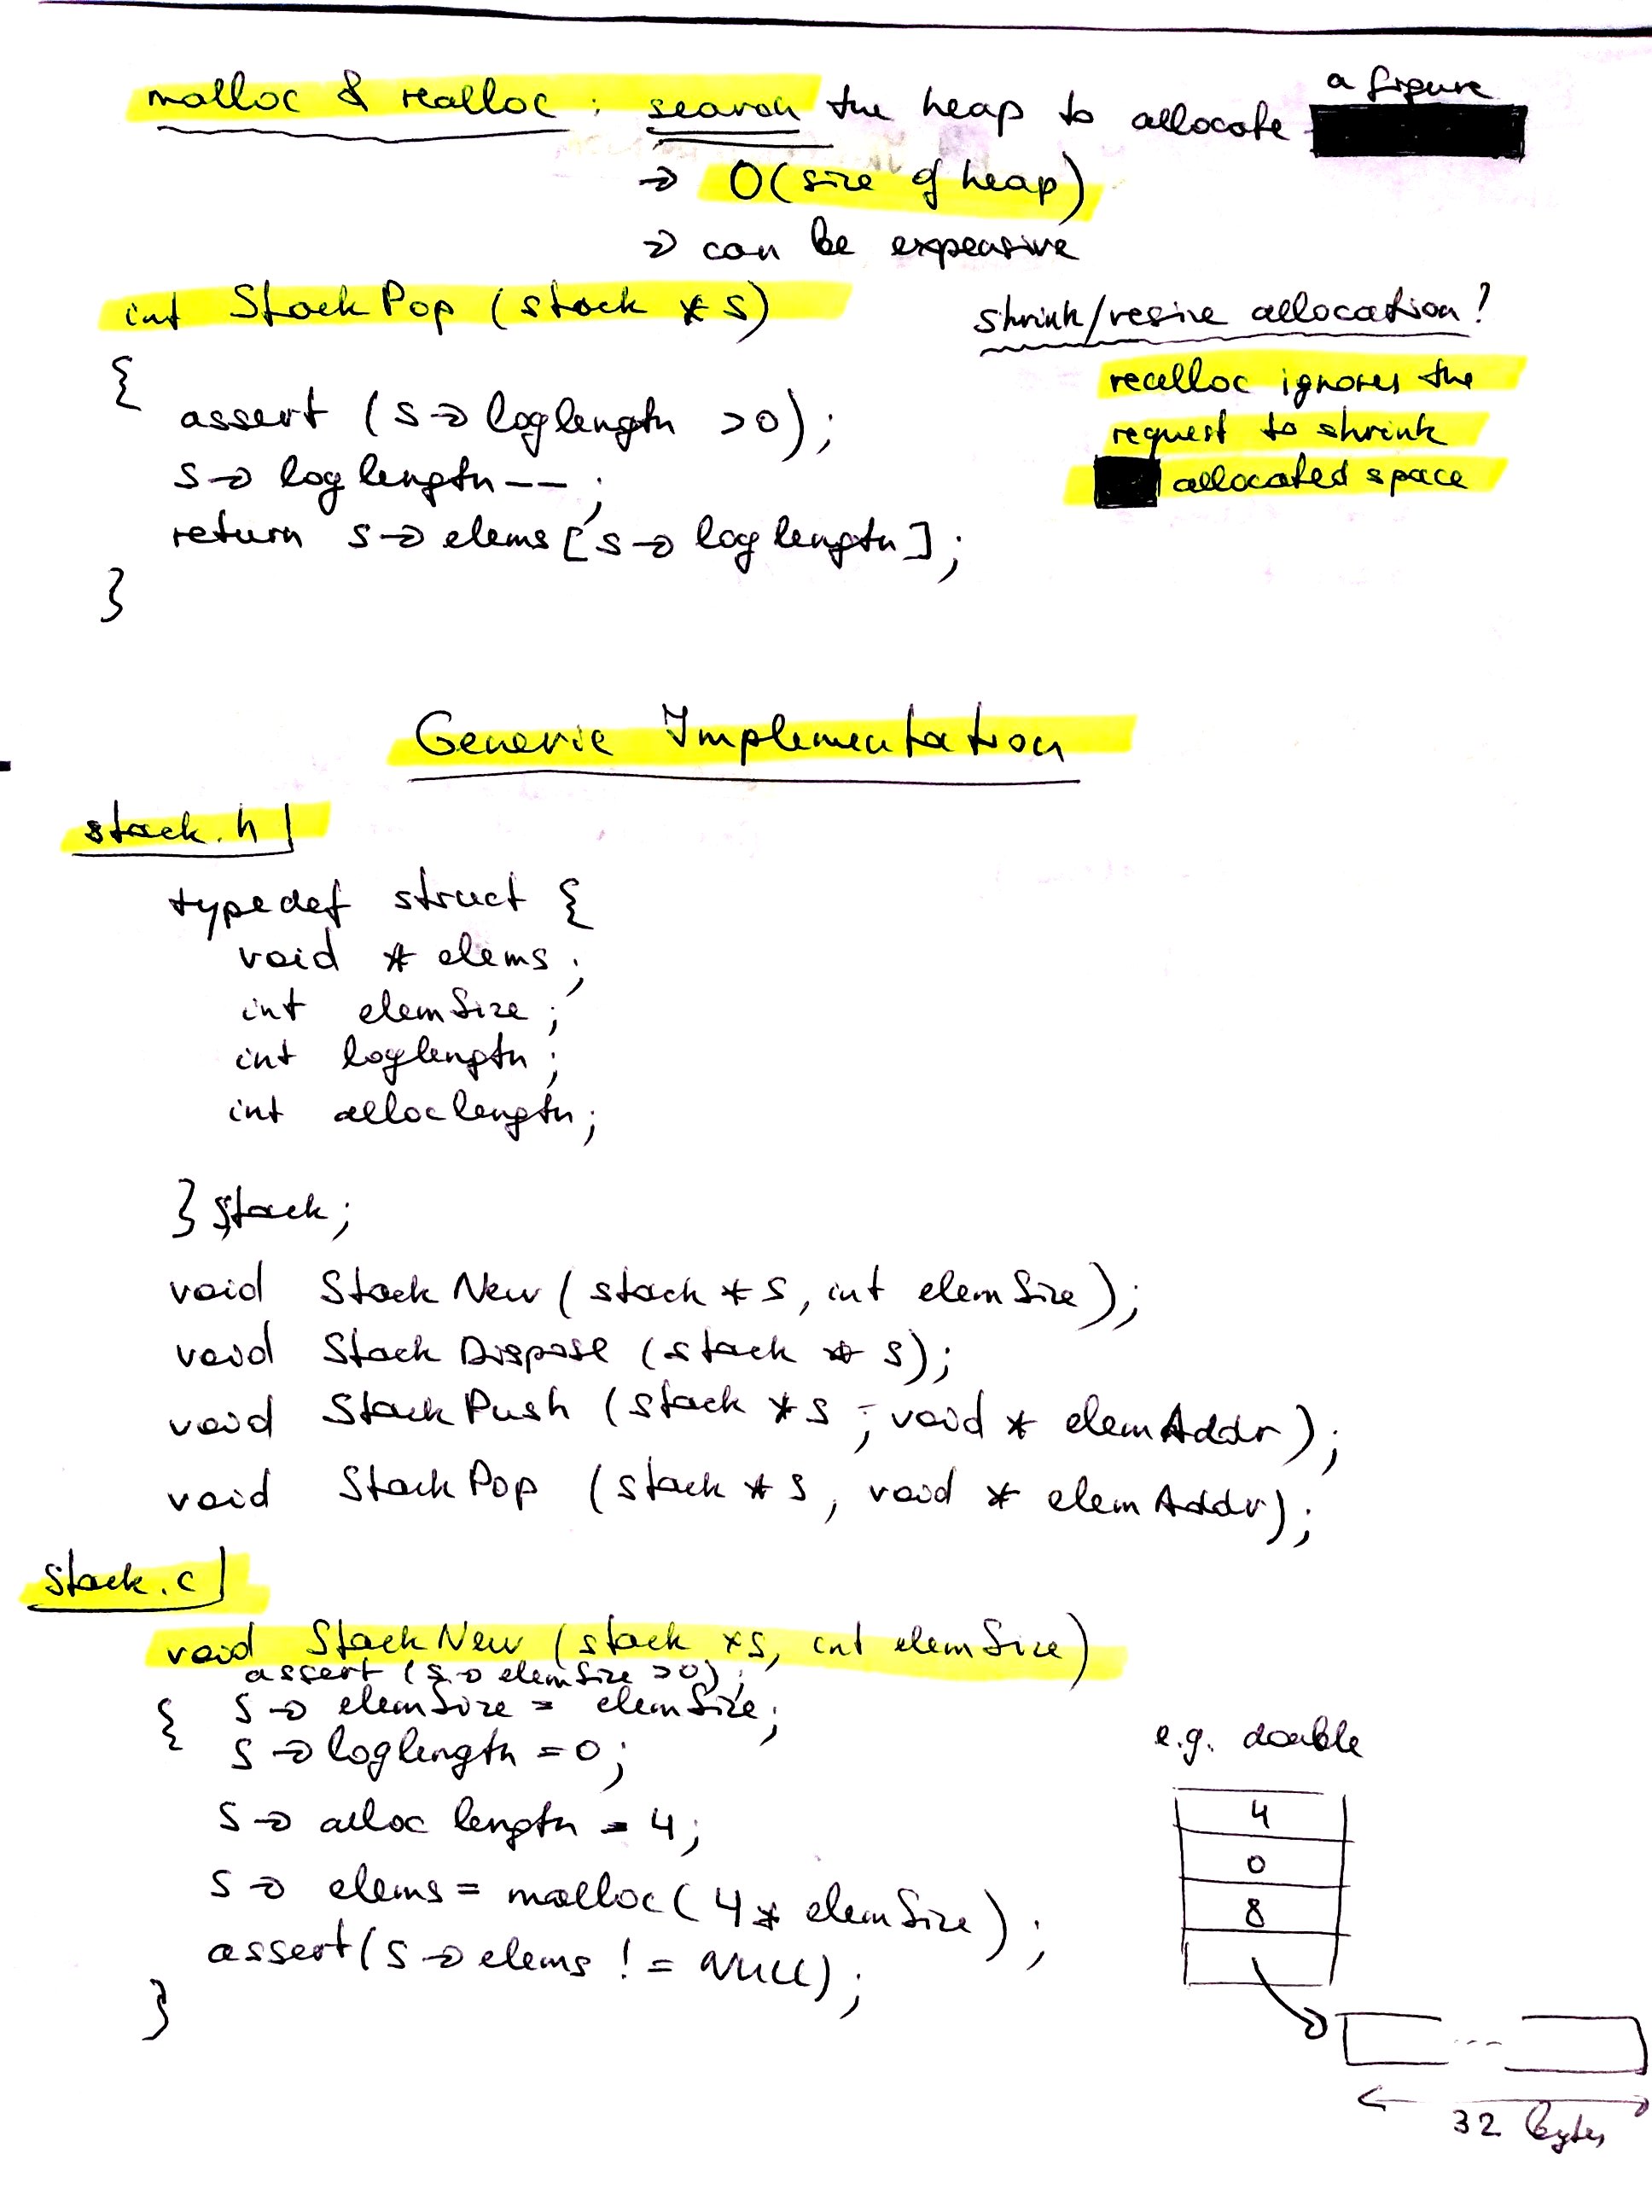 malloc & realloc : search the heap to allocate a figure
→ O(size of heap)
→ can be expensive
int StackPop (stack *s)
{
assert (s→loglength >0);
s→loglength--;
return s→elems[s→loglength];
}
shrink/resize allocation?
realloc ignores the
request to shrink
allocated space
Generic Implementation
stack.h
typedef struct {
void * elems;
int elemSize;
int loglength;
int alloclength;
} stack;
void StackNew (stack *s, int elemSize);
void StackDispose (stack * s);
void StackPush (stack *s, void * elemAddr);
void StackPop (stack *s, void * elemAddr);
stack.c
void StackNew (stack *s, int elemSize)
assert (s→elemSize >0);
{ s→elemSize = elemSize;
s→loglength = 0;
s→alloclength = 4;
s→elems = malloc(4* elemSize);
assert(s→elems != NULL);
}
e.g. double
4
0
8
...
32 bytes